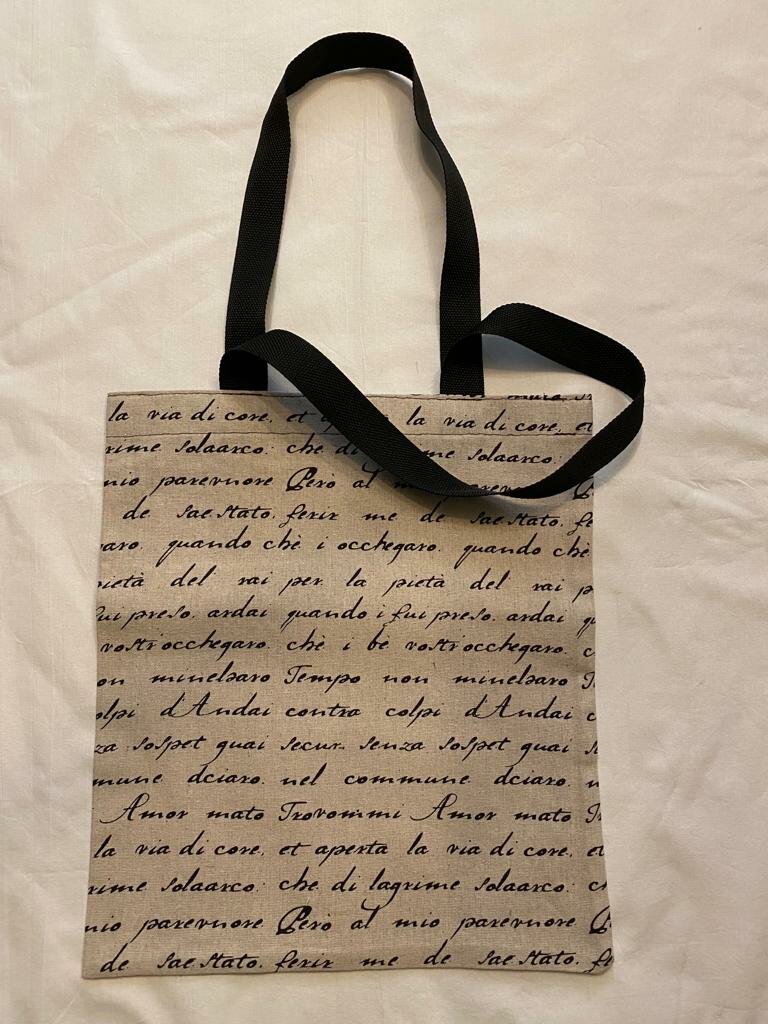 la via di core, et la via di core, et
rime solaarco: che di me solaarco:
mio parevnore Però al parevn
de sae stato. ferir me de sae stato. fe
aro. quando chè i occhegaro. quando chè
pietà del rai per la pietà del rai p
fui preso. ardai quando i fui preso. ardai qu
vostr'occhegaro. chè i bè vostr'occhegaro. c
on minelsaro Tempo non minelsaro T
olpi d'Andai contra colpi d'Andai c
za sospet guai secur. senza sospet guai s
mune dciaro. nel commune dciaro. n
Amor mato Trovommi Amor mato Tr
la via di core, et aperta la via di core, et
rime solaarco: che di lagrime solaarco: ch
mio parevnore Però al mio parevnore P
de sae stato. ferir me de sae stato. fe